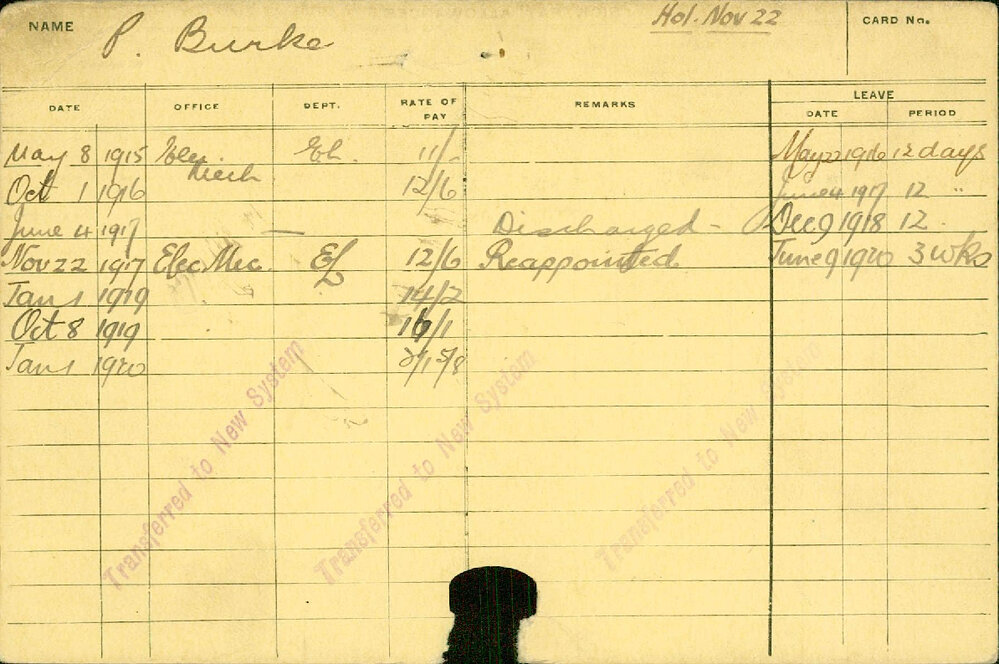 NAME P. Burke Hol. Nov 22 CARD No.
DATE OFFICE DEPT. RATE OF PAY REMARKS LEAVE
DATE PERIOD
May 8 1915 Elec. El. 11/- May 22 1916 12 days
Mech
Oct 1 1916 12/6 June 4 1917 12 "
June 4 1917 — Discharged - Dec 9 1918 12
Nov 22 1917 Elec Mec. EL 12/6 Reappointed June 9 1920 3 wks
Jan 1 1919 14/2
Oct 8 1919 16/1
Jan 1 1920
Transferred to New System
Transferred to New System
Transferred to New System